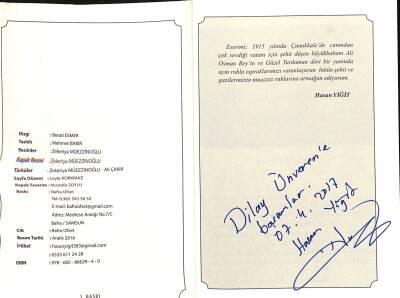 Dizgi : Berati ESMER
Tashih : Mehmet BAKIR
Resimler : Zekeriya MÜEZZİNOĞLU
Kapak Resmi : Zekeriya MÜEZZİNOĞLU
Türküler : Zekeriya MÜEZZİNOĞLU - Ali ÇAKIR
Sayfa Düzeni : Leyla KORKMAZ
Kapak Tasarım : Mustafa SOYLU
Baskı : Bafra Ofset
Tel:0.362 543 36 52
E-mail: bafraofset@gmail.com
Adres: Medrese Aralığı No:7/C
Bafra / SAMSUN
Cilt : Bafra Ofset
Basım Tarihi : Aralık 2016
İrtibat : hasanyigit383@gmail.com
: 0535 611 24 28
ISBN : 978 - 605 - 66629 - 4 - 0
2. BASKI
Eserimi; 1915 yılında Çanakkale'de canından
çok sevdiği vatanı için şehit düşen büyükbabam Ali
Osman Bey'in ve Güzel Yurdumun dört bir yanında
aynı ruhla topraklarımızı vatanlaştıran bütün şehit ve
gazilerimizin muazzez ruhlarına armağan ediyorum.
Hasan YİĞİT
Dilay Ünveren'e
başarılar.
07.4.2017
Hasan Yiğit